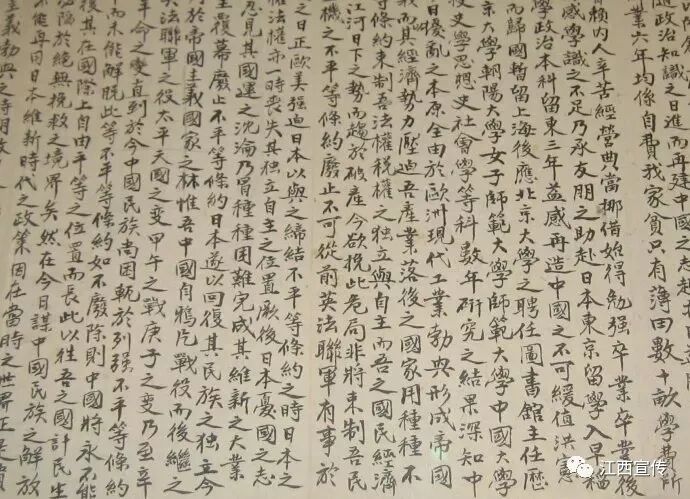 随政治知识之日进而再建中国之志
業六年均係自費我家貧只有薄田數十畝學費所
賴内人辛苦經營典當挪借始得勉强卒業卒業後
感學識之不足乃承友朋之助赴日本東京留學入早稻
學政治本科留東三年益感再造中国之不可緩值洪憲
而歸國暫留上海後應北京大學之聘任圖書館主任歷
京大學朝陽大學女子師範大學師範大學中國大學
授史學思想史社會學等科數年研究之結果深知中
日擾亂之本原全由於歐洲現代工業勃興形成帝國
義而其經濟勢力壓迫吾產業落後之國家用種種不
等條約束制吾法權稅權之獨立與自主而吾之國民經濟
江河日下之勢而趨於破產今欲挽此危局非將束制吾民
機之不平等條約廢止不可從前英法聯軍有事於
之日正歐美强迫日本以與之締結不平等條約之時日本之
法權亦一時喪失其獨立自主之位置厥後日本憂國之志
忍見其國運之沈淪乃冒種種困難完成其維新之大業
王覆幕廢止不平等條約日本遂以回復其民族之獨立今
於帝國主義國家之林惟吾中國自鴉片戰役而後繼之
英法聯軍之役太平天國之變甲午之戰庚子之變乃至辛
革命之變直到於今中國民族尚困軛於列强不平等條約
下而未能解脱此等不平等條約如不廢除則中國將永不能
復其在國際上自由平等之位置而長此以往吾之國計民生
陷於絕無挽救之境界矣然在今日謀中國民族之解放
不能再用日本維新時代之政策因在當時之世界正是資
主義勃興之時期
江西宣传